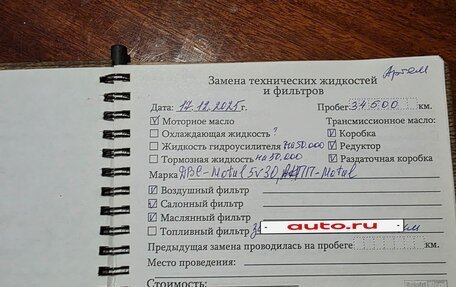 Артем
Замена технических жидкостей
и фильтров
Дата: 17.12.2025г. Пробег 34500 км.
Моторное масло Трансмиссионное масло:
Охлаждающая жидкость ? Коробка
Жидкость гидроусилителя на 50.000 Редуктор
Тормозная жидкость на 50.000 Раздаточная коробка
Марка ДВС-Motul 5w30, АКПП-Motul
Воздушный фильтр
Салонный фильтр
Маслянный фильтр
Топливный фильтр
auto.ru
Предыдущая замена проводилась на пробеге км.
Место проведения:
Стоимость: